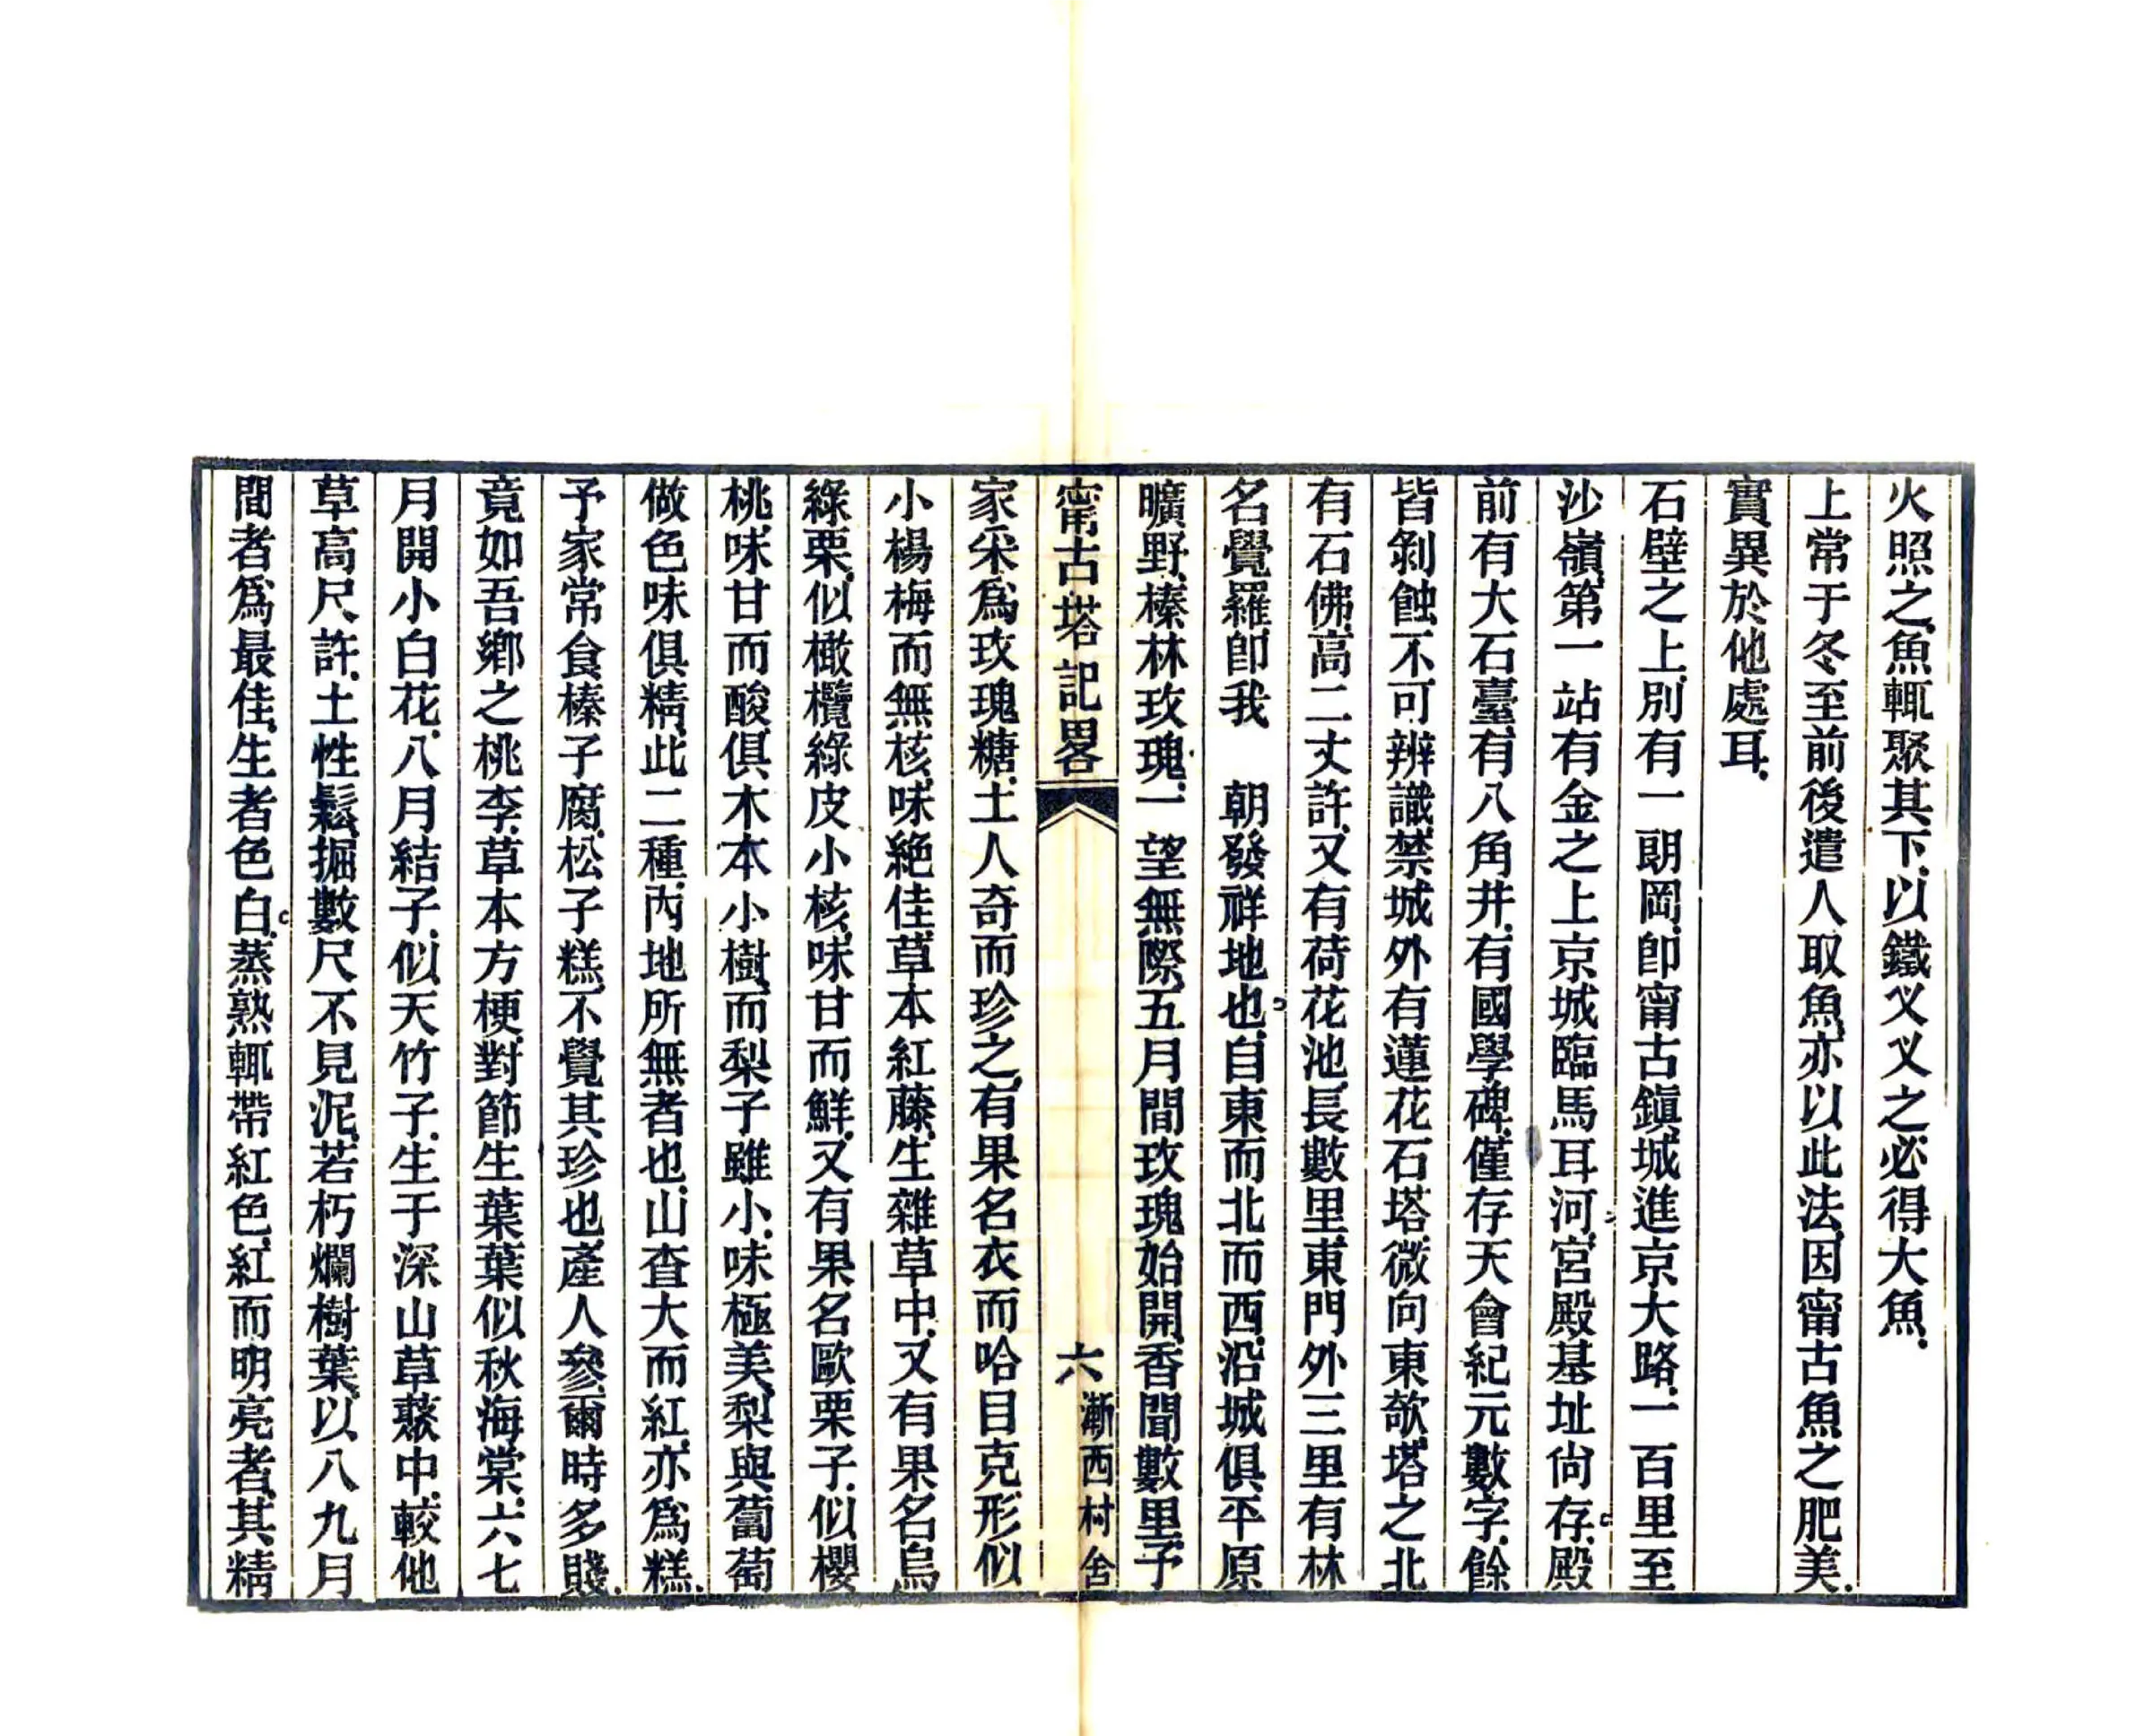 火照之魚輒聚其下以鐵叉叉之必得大魚
上常于冬至前後遣人取魚亦以此法因甯古魚之肥美
實異於他處耳
石壁之上別有一朗岡卽甯古鎭城進京大路一百里至
沙嶺第一站有金之上京城臨馬耳河宮殿基址尙存殿
前有大石臺有八角井有國學碑僅存天會紀元數字餘
皆剝蝕不可辨識禁城外有蓮花石塔微向東欹塔之北
有石佛高二丈許又有荷花池長數里東門外三里有林
名覺羅卽我 朝發祥地也自東而北而西沿城俱平原
曠野榛林玫瑰一望無際五月間玫瑰始開香聞數里予
甯古塔記畧
六
漸西村舍
家采爲玫瑰糖土人奇而珍之有果名衣而哈目克形似
小楊梅而無核味絶佳草本紅藤生雜草中又有果名烏
綠栗似橄欖綠皮小核味甘而鮮又有果名歐栗子似櫻
桃味甘而酸俱木本小樹而梨子雖小味極美梨與葡萄
做色味俱精此二種丙地所無者也山査大而紅亦爲糕
予家常食榛子腐松子糕不覺其珍也產人參爾時多賤
竟如吾鄕之桃李草本方梗對節生葉葉似秋海棠六七
月開小白花八月結子似天竹子生于深山草藂中較他
草高尺許土性鬆掘數尺不見泥若朽爛樹葉以八九月
間者爲最佳生者色白蒸熟輒帶紅色紅而明亮者其精